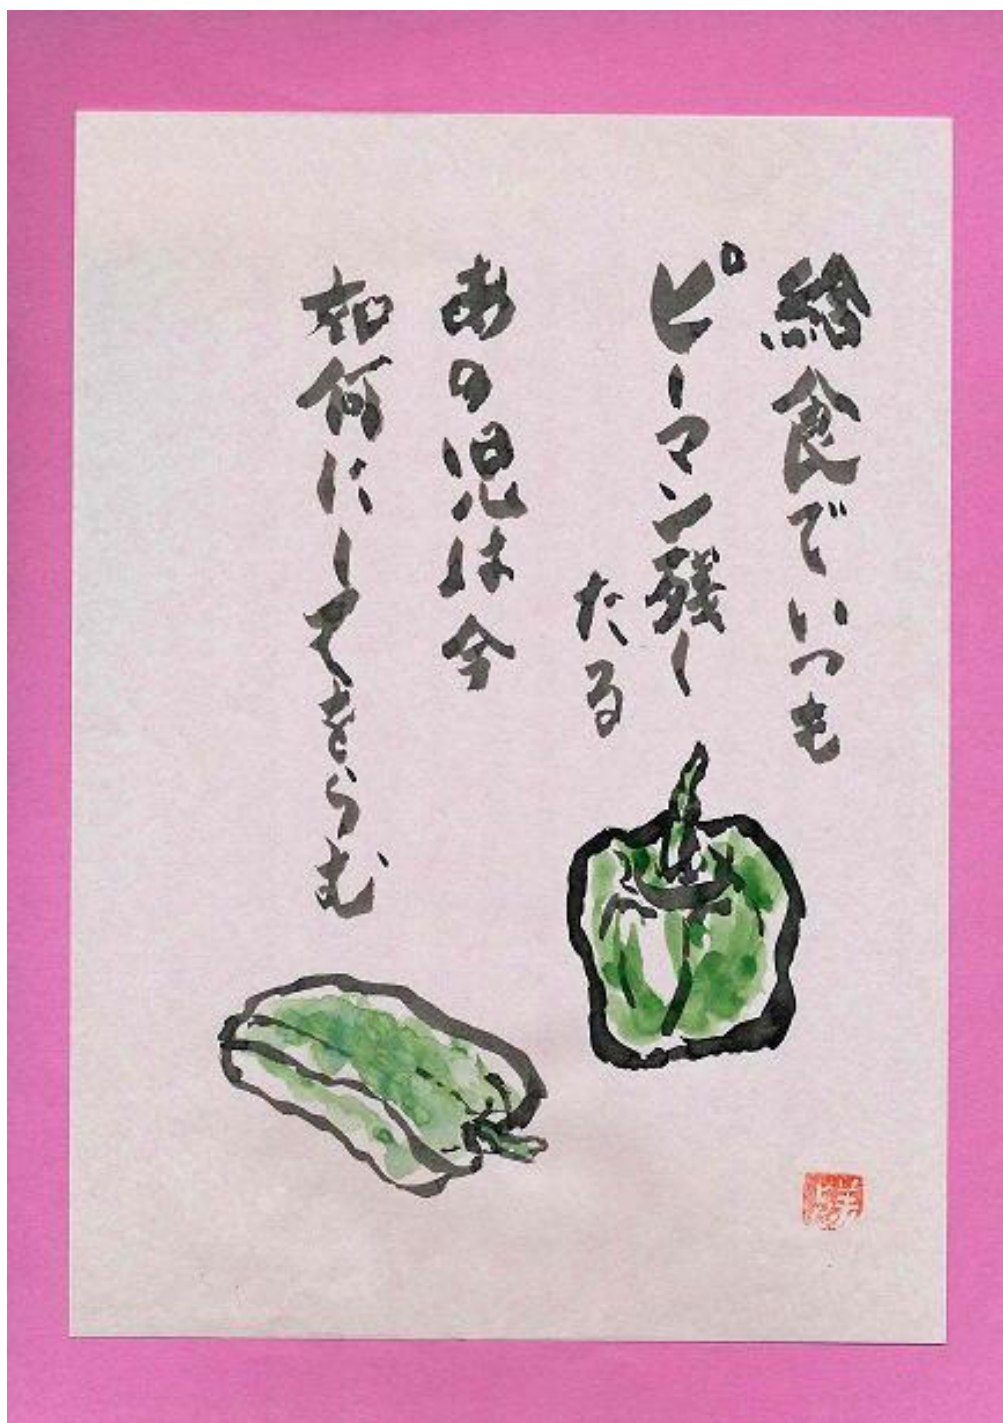 給食でいつも
ピーマン残し
たる
あの児は今
如何にしてをらむ